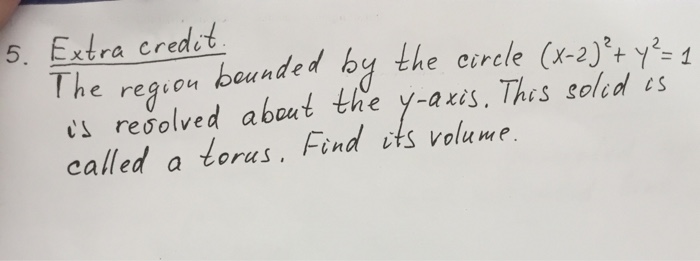 5. Extra credit.
The region bounded by the circle (x-2)²+ y²= 1
is revolved about the y-axis. This solid is
called a torus. Find its volume.